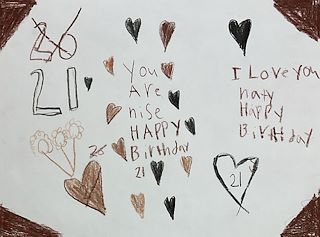 26
21
You
Are
nise
HAPPY
26 Birthday
21
I Love you
HAPPY
Birthday
21